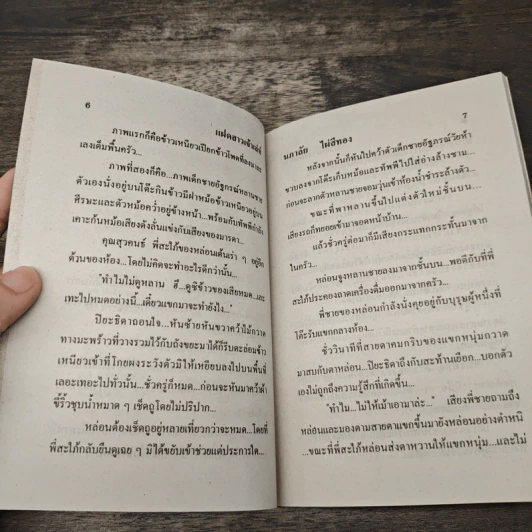 6
แฝดสาวเจ้าเล่ห์
ภาพแรกก็คือข้าวเหนียวเปียกข้าวโพดที่ลงมาละ
เลงเต็มพื้นครัว...
ภาพที่สองก็คือ...ภาพเด็กชายอัฐภรณ์หลานชาย
ตัวเองนั่งอยู่บนโต๊ะกินข้าวมีฝาหม้อข้าวเหนียวอยู่บน
ศีรษะและตัวหม้อคว่ำอยู่ข้างหน้า...พร้อมกับทัพพีกำลัง
เคาะก้นหม้อเสียงดังลั่นแข่งกับเสียงของมารดา...
คุณสุวคนธ์ พี่สะใภ้ของหล่อนเต้นเร่า ๆ อยู่อีก
ด้านของห้อง...โดยไม่คิดจะทำอะไรดีกว่านั้น...
"ทำไมไม่ดูหลาน ฮึ...ดูซิข้าวของเสียหมด...และ
เทะไปหมดอย่างนี้...เดี๋ยวแขกมาจะทำยังไง..."
ปิยะธิดาถอนใจ...หันซ้ายหันขวาคว้าไม้กวาด
ทางมะพร้าวที่วางรวมไว้กับถังขยะมาได้ก็รีบตะล่อมข้าว
เหนียวเข้าที่โกยผงระวังตัวมิให้เหยียบลงไปบนพื้นที่
เลอะเทอะไปทั่วนั้น...ชั่วครู่ก็หมด...ก่อนจะหันมาคว้าผ้า
ขี้ริ้วชุบน้ำหมาด ๆ เช็ดถูโดยไม่ปริปาก...
หล่อนต้องเช็ดถูอยู่หลายเที่ยวกว่าจะหมด...โดยที่
พี่สะใภ้กลับยืนดูเฉย ๆ มิได้ขยับเข้าช่วยแต่ประการใด...
7
นภาลัย ไผ่สีทอง
หลังจากนั้นก็หันไปคว้าตัวเด็กชายอัฐภรณ์วัยห้า
ขวบลงจากโต๊ะเก็บหม้อและทัพพีไปใส่อ่างล้างชาม...
ก่อนจะลากตัวหลานชายจอมวุ่นเข้าห้องน้ำชำระล้างตัว...
ขณะที่พาหลานขึ้นไปแต่งตัวใหม่ชั้นบน...
เสียงรถก็ทยอยเข้ามาจอดหน้าบ้าน...
แล้วชั่วครู่ต่อมาก็มีเสียงกระแทกกระทั้นมาจาก
ในครัว...
หล่อนจูงหลานชายลงมาจากชั้นบน...พอดีกับที่พี่
สะใภ้ประคองถาดเครื่องดื่มออกมาจากครัว...
พี่ชายของหล่อนกำลังนั่งคุยอยู่กับบุรุษผู้หนึ่งที่
โต๊ะรับแขกกลางห้อง...
ชั่ววินาทีที่สายตาคมกริบของแขกหนุ่มกวาด
มาสบกับตาหล่อน...ปิยะธิดาถึงกับสะท้านเยือก...บอกตัว
เองไม่ถูกถึงความรู้สึกที่เกิดขึ้น...
"ทำไม...ไม่ให้เม้าเอามาล่ะ..." เสียงพี่ชายถามถึง
หล่อนและมองตามสายตาแขกขึ้นมายังหล่อนด้วยท่าหนิ
...ขณะที่พี่สะใภ้หล่อนส่งตาหวานให้แขกหนุ่ม...และไม่